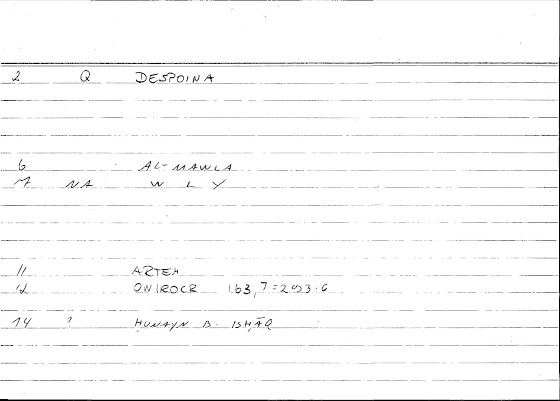 2 Q DESPOINA
6 AL-MAWLA
7 NA W L Y
11 ARTEM
12 ONIROCR 163,7=293.6
14 ? HUNAYN B. ISḤĀQ